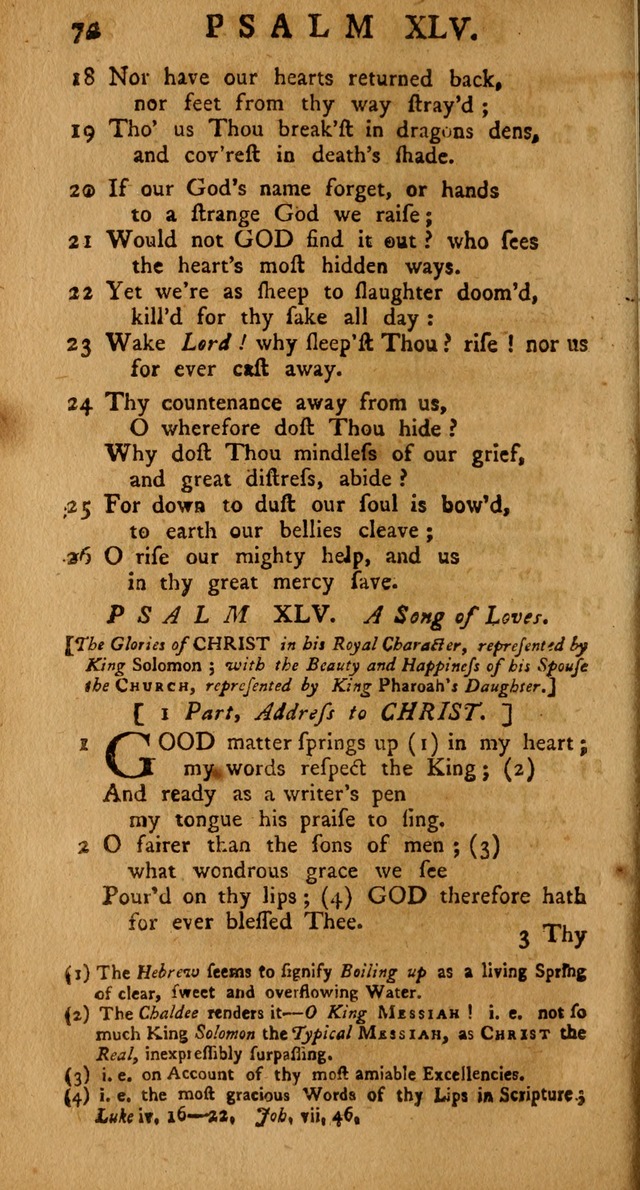 72 PSALM XLV.
18 Nor have our hearts returned back,
nor feet from thy way ſtray'd ;
19 Tho' us Thou break'ſt in dragons dens,
and cov'reſt in death's ſhade.
20 If our God's name forget, or hands
to a ſtrange God we raiſe ;
21 Would not GOD find it out ? who ſees
the heart's moſt hidden ways.
22 Yet we're as ſheep to ſlaughter doom'd,
kill'd for thy ſake all day :
23 Wake Lord ! why ſleep'ſt Thou ? riſe ! nor us
for ever caſt away.
24 Thy countenance away from us,
O wherefore doſt Thou hide ?
Why doſt Thou mindleſs of our grief,
and great diſtreſs, abide ?
25 For down to duſt our ſoul is bow'd,
to earth our bellies cleave ;
26 O riſe our mighty help, and us
in thy great mercy ſave.
PSALM XLV. A Song of Loves.
[The Glories of CHRIST in his Royal Character, repreſented by
King Solomon ; with the Beauty and Happineſs of his Spouſe
the CHURCH, repreſented by King Pharoah's Daughter.]
[ 1 Part, Addreſs to CHRIST. ]
1 GOOD matter ſprings up (1) in my heart ;
my words reſpect the King ; (2)
And ready as a writer's pen
my tongue his praiſe to ſing.
2 O fairer than the ſons of men ; (3)
what wondrous grace we ſee
Pour'd on thy lips ; (4) GOD therefore hath
for ever bleſſed Thee.
3 Thy
(1) The Hebrew ſeems to ſignify Boiling up as a living Spring
of clear, ſweet and overflowing Water.
(2) The Chaldee renders it—O King MESSIAH ! i. e. not ſo
much King Solomon the Typical MESSIAH, as CHRIST the
Real, inexpreſſibly ſurpaſſing.
(3) i. e. on Account of thy moſt amiable Excellencies.
(4) i. e. the moſt gracious Words of thy Lips in Scripture ;
Luke iv, 16—22, Joh, vii, 46,